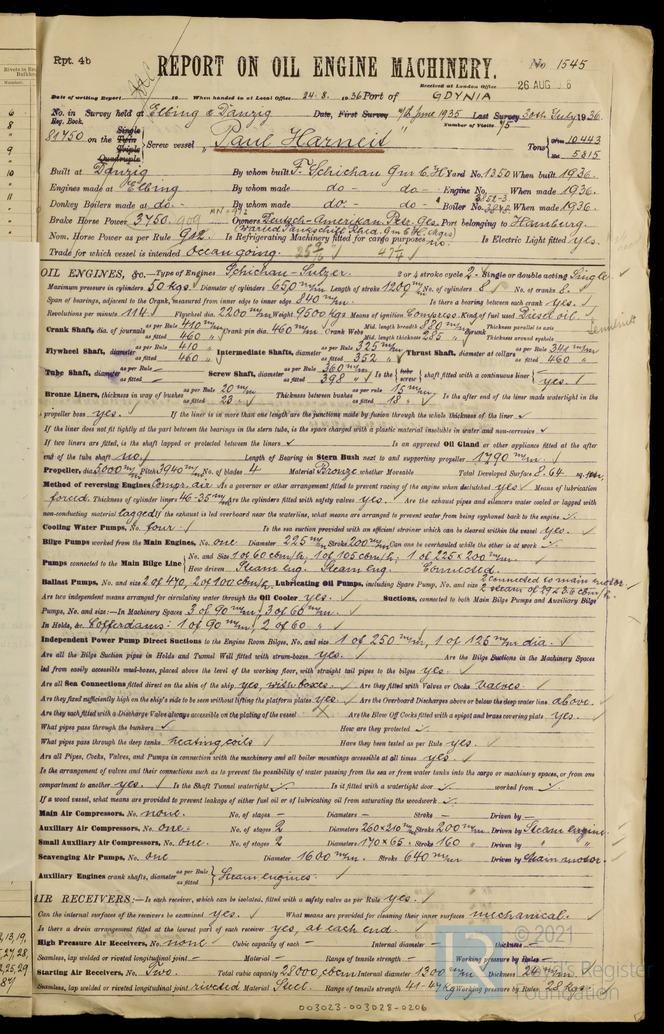 Rpt. 4b
REPORT ON OIL ENGINE MACHINERY.
No 1545
Received at London Office 26 AUG
Date of writing Report 19 When handed in at Local Office 24.8.1936 Port of GDYNIA
No. in Survey held at Elbing & Danzig Date, First Survey June 1935 Last Survey 30th July 1936
Reg. Book. Number of Visits 75
on the Single Twin Triple Quadruple Screw vessel "Paul Harneit" Tons Gross 10443 Net 5815
Built at Danzig By whom built F. Schichau G.m.b.H. Yard No. 1350 When built 1936
Engines made at Elbing By whom made do — do — Engine No. When made 1936.
Donkey Boilers made at do. By whom made do. — do — Boiler No. When made 1936.
Brake Horse Power 3750 Owners Deutsch-Amerikan. Petr. Ges. Port belonging to Hamburg.
Nom. Horse Power as per Rule 902 Is Refrigerating Machinery fitted for cargo purposes no. Is Electric Light fitted yes.
Trade for which vessel is intended Ocean going.
OIL ENGINES, &c.—Type of Engines Schichau-Sulzer. 2 or 4 stroke cycle 2 Single or double acting Single
Maximum pressure in cylinders 50 kgs. Diameter of cylinders 650 m/m. Length of stroke 1200 m/m No. of cylinders 8 No. of cranks 8
Span of bearings, adjacent to the Crank, measured from inner edge to inner edge 840 m/m. Is there a bearing between each crank yes.
Revolutions per minute 114 Flywheel dia. 2200 m/m Weight 9500 kgs Means of ignition Compress. Kind of fuel used Diesel oil.
Crank Shaft, dia. of journals as per Rule 410 m/m as fitted 460 Crank pin dia. 460 m/m Crank Webs Mid. length breadth 880 m/m Mid. length thickness 285 shrunk Thickness parallel to axis Thickness around eyehole
Flywheel Shaft, diameter as per Rule 410 as fitted 460 Intermediate Shafts, diameter as per Rule 325 m/m as fitted 352 Thrust Shaft, diameter at collars as per Rule 342 m/m as fitted 460
Tube Shaft, diameter as per Rule — as fitted — Screw Shaft, diameter as per Rule 360 m/m as fitted 398 Is the tube screw shaft fitted with a continuous liner yes.
Bronze Liners, thickness in way of bushes as per Rule 20 m/m as fitted 23 Thickness between bushes as per rule 15 m/m as fitted 18 Is the after end of the liner made watertight in the
propeller boss yes. If the liner is in more than one length are the junctions made by fusion through the whole thickness of the liner
If the liner does not fit tightly at the part between the bearings in the stern tube, is the space charged with a plastic material insoluble in water and non-corrosive
If two liners are fitted, is the shaft lapped or protected between the liners Is an approved Oil Gland or other appliance fitted at the after
end of the tube shaft no. Length of Bearing in Stern Bush next to and supporting propeller 1790 m/m.
Propeller, dia. 5000 m/m Pitch 3940 m/m No. of blades 4 Material Bronze whether Moveable Total Developed Surface 8.64 sq.
Method of reversing Engines Compr. air Is a governor or other arrangement fitted to prevent racing of the engine when declutched yes Means of lubrication
forced. Thickness of cylinder liners 46-35 m/m Are the cylinders fitted with safety valves yes. Are the exhaust pipes and silencers water cooled or lagged with
non-conducting material lagged If the exhaust is led overboard near the waterline, what means are arranged to prevent water from being syphoned back to the engine
Cooling Water Pumps, No. four. Is the sea suction provided with an efficient strainer which can be cleared within the vessel yes.
Bilge Pumps worked from the Main Engines, No. one Diameter 225 m/m Stroke 200 m/m Can one be overhauled while the other is at work
Pumps connected to the Main Bilge Line No. and Size 1 of 60 cbm/h, 1 of 105 cbm/h, 1 of 225 x 200 m/m How driven Steam eng. Steam eng. Connected.
Ballast Pumps, No. and size 2 of 470, 2 of 100 cbm/h. Lubricating Oil Pumps, including Spare Pump, No. and size 2 connected to main motor. 2 steam of 29 & 36 cbm/h.
Are two independent means arranged for circulating water through the Oil Cooler yes. Suctions, connected to both Main Bilge Pumps and Auxiliary Bilge
Pumps, No. and size:—In Machinery Spaces 3 of 90 m/m, 3 of 60 m/m.
In Holds, &c. Cofferdams: 1 of 90 m/m, 2 of 60
Independent Power Pump Direct Suctions to the Engine Room Bilges, No. and size 1 of 250 m/m, 1 of 125 m/m dia.
Are all the Bilge Suction pipes in Holds and Tunnel Well fitted with strum-boxes yes. Are the Bilge Suctions in the Machinery Spaces
led from easily accessible mud-boxes, placed above the level of the working floor, with straight tail pipes to the bilges yes.
Are all Sea Connections fitted direct on the skin of the ship yes, with boxes. Are they fitted with Valves or Cocks Valves.
Are they fixed sufficiently high on the ship's side to be seen without lifting the platform plates yes. Are the Overboard Discharges above or below the deep water line above.
Are they each fitted with a Discharge Valve always accessible on the plating of the vessel Are the Blow Off Cocks fitted with a spigot and brass covering plate yes.
What pipes pass through the bunkers How are they protected
What pipes pass through the deep tanks heating coils Have they been tested as per Rule yes.
Are all Pipes, Cocks, Valves, and Pumps in connection with the machinery and all boiler mountings accessible at all times yes.
Is the arrangement of valves and their connections such as to prevent the possibility of water passing from the sea or from water tanks into the cargo or machinery spaces, or from one
compartment to another yes. Is the Shaft Tunnel watertight Is it fitted with a watertight door worked from
If a wood vessel, what means are provided to prevent leakage of either fuel oil or of lubricating oil from saturating the woodwork
Main Air Compressors, No. none. No. of stages — Diameters — Stroke — Driven by —
Auxiliary Air Compressors, No. one. No. of stages 2 Diameters 260 x 210 m/m Stroke 200 m/m Driven by Steam engine
Small Auxiliary Air Compressors, No. one. No. of stages 2 Diameters 170 x 65 Stroke 160 Driven by " "
Scavenging Air Pumps, No. one Diameter 1600 m/m. Stroke 640 m/m Driven by Main motor.
Auxiliary Engines crank shafts, diameter as per Rule as fitted Steam engines.
AIR RECEIVERS:—Is each receiver, which can be isolated, fitted with a safety valve as per Rule yes.
Can the internal surfaces of the receivers be examined yes. What means are provided for cleaning their inner surfaces mechanical.
Is there a drain arrangement fitted at the lowest part of each receiver yes, at each end.
High Pressure Air Receivers, No. none Cubic capacity of each — Internal diameter — thickness —
Seamless, lap welded or riveted longitudinal joint — Material — Range of tensile strength — Working pressure by Rules —
Starting Air Receivers, No. Two. Total cubic capacity 28000 cbcm Internal diameter 1300 m/m thickness 24 m/m.
Seamless, lap welded or riveted longitudinal joint riveted Material Steel. Range of tensile strength 41-47 kg Working pressure by Rules 28 kgs.
003023-003028-0206
© 2021
LR
Lloyd's Register
Foundation